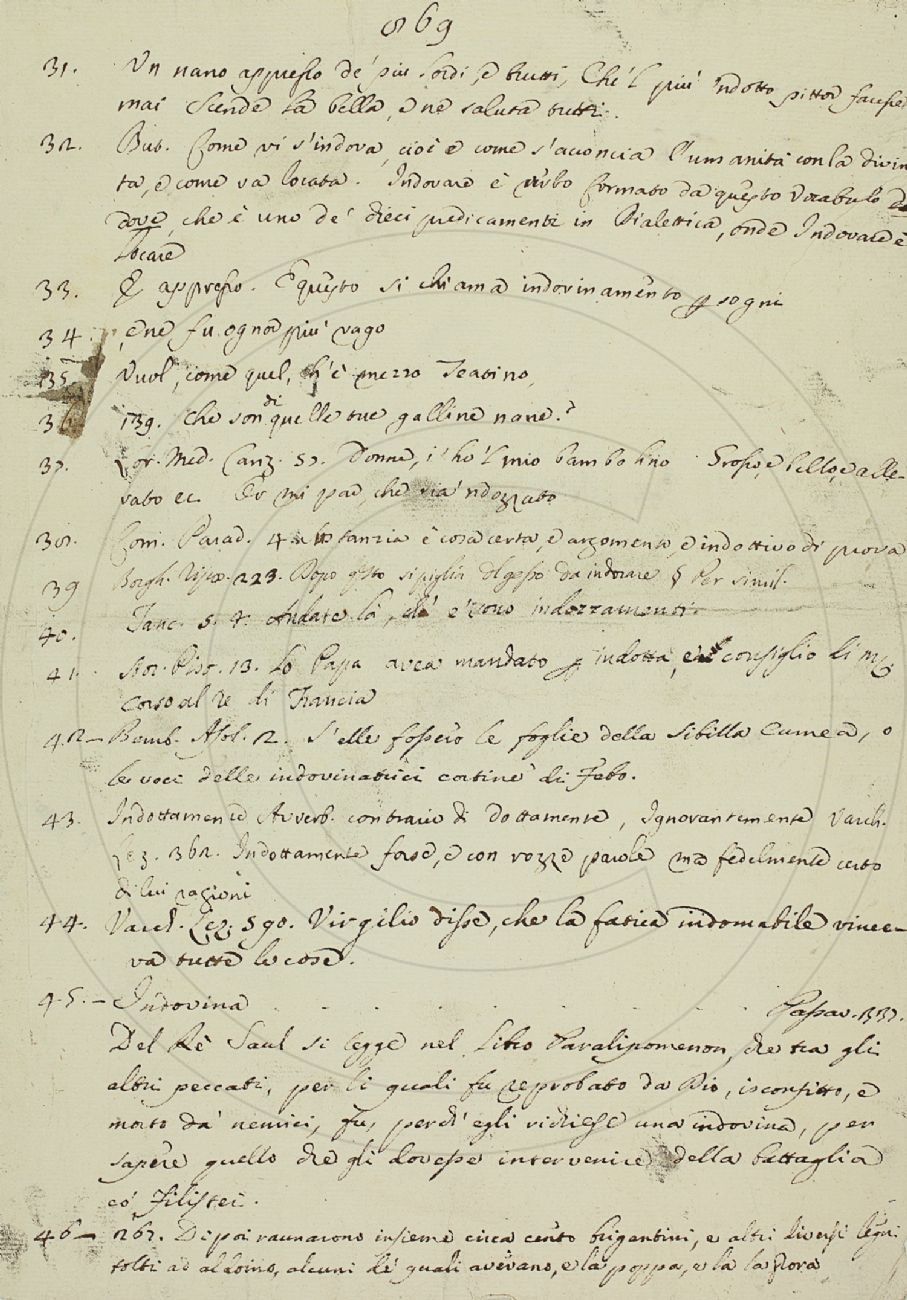 869
31. Un nano appresso de' più sordi, e brutti, Che 'l più 'ndotto pittor facesse
mai Scende la bella, e ne saluta tutti.
32. But. Come vi s'indova, cioè e come s'acconcia l'umanità con la divin
ta, e come va locata. Indovare è verbo formato da questo vocabulo
dove, che è uno de' dieci predicamenti in Dialettica, onde Indovare è
Locare
33. E appresso. E questo si chiama indovinamento p sogni
34. , e ne fu ognor più vago
35. Vuol, come quel, ch'è mezzo Teatino,
36. 139. Che son di quelle tue galline nane.?
37. Lor. Med. Canz. 57. Donne, i' ho 'l mio bambolino Grosso, e bello, e alle-
vato ec. Or mi par, che sia 'ndozzato
38. Com. Parad. 4 substanzia è cosa certa, e argomento, e indottivo di prova
39 Borgh. Ripos. 223. Dopo qsto si piglia del gesso da indorare § Per simil.
40. Tanc. 5. 4. Andate là, che e' sono indozzamenti.
41. Stor. Pist. 13. Lo Papa avea mandato p indotta, e consiglio di
Corso al re di Francia
42- Bemb. Asol. 2. S'elle fossero le foglie della Sibilla Cumea, o
le voci delle indovinatrici cortine di Febo.
43. Indottamente Avverb. contrario di dottamente, Ignorantemente Varch.
Lez. 362. Indottamente forse, e con rozze parole ma fedelmente certo
di lui ragioni
44. Varch. Lez. 590. Virgilio disse, che la fatica indomabile vince-
va tutte le cose.
45.- Indovina . . . . . . . . Passav. 337.
Del Rè Saul si legge nel Libro Paralipomenon, che tra gli
altri peccati, per li quali fu reprobato da Dio, isconfitto, e
morto da' nemici, fu, perch' egli richiese una indovina, per
sapere quello che gli dovesse intervenire della battaglia
co' Filistei.
46- 267. Dipoi raunarono insieme circa cento brigantini, e altri diversi legni
tolti ad alcuni, li quali avevano, e la poppa, e la prora